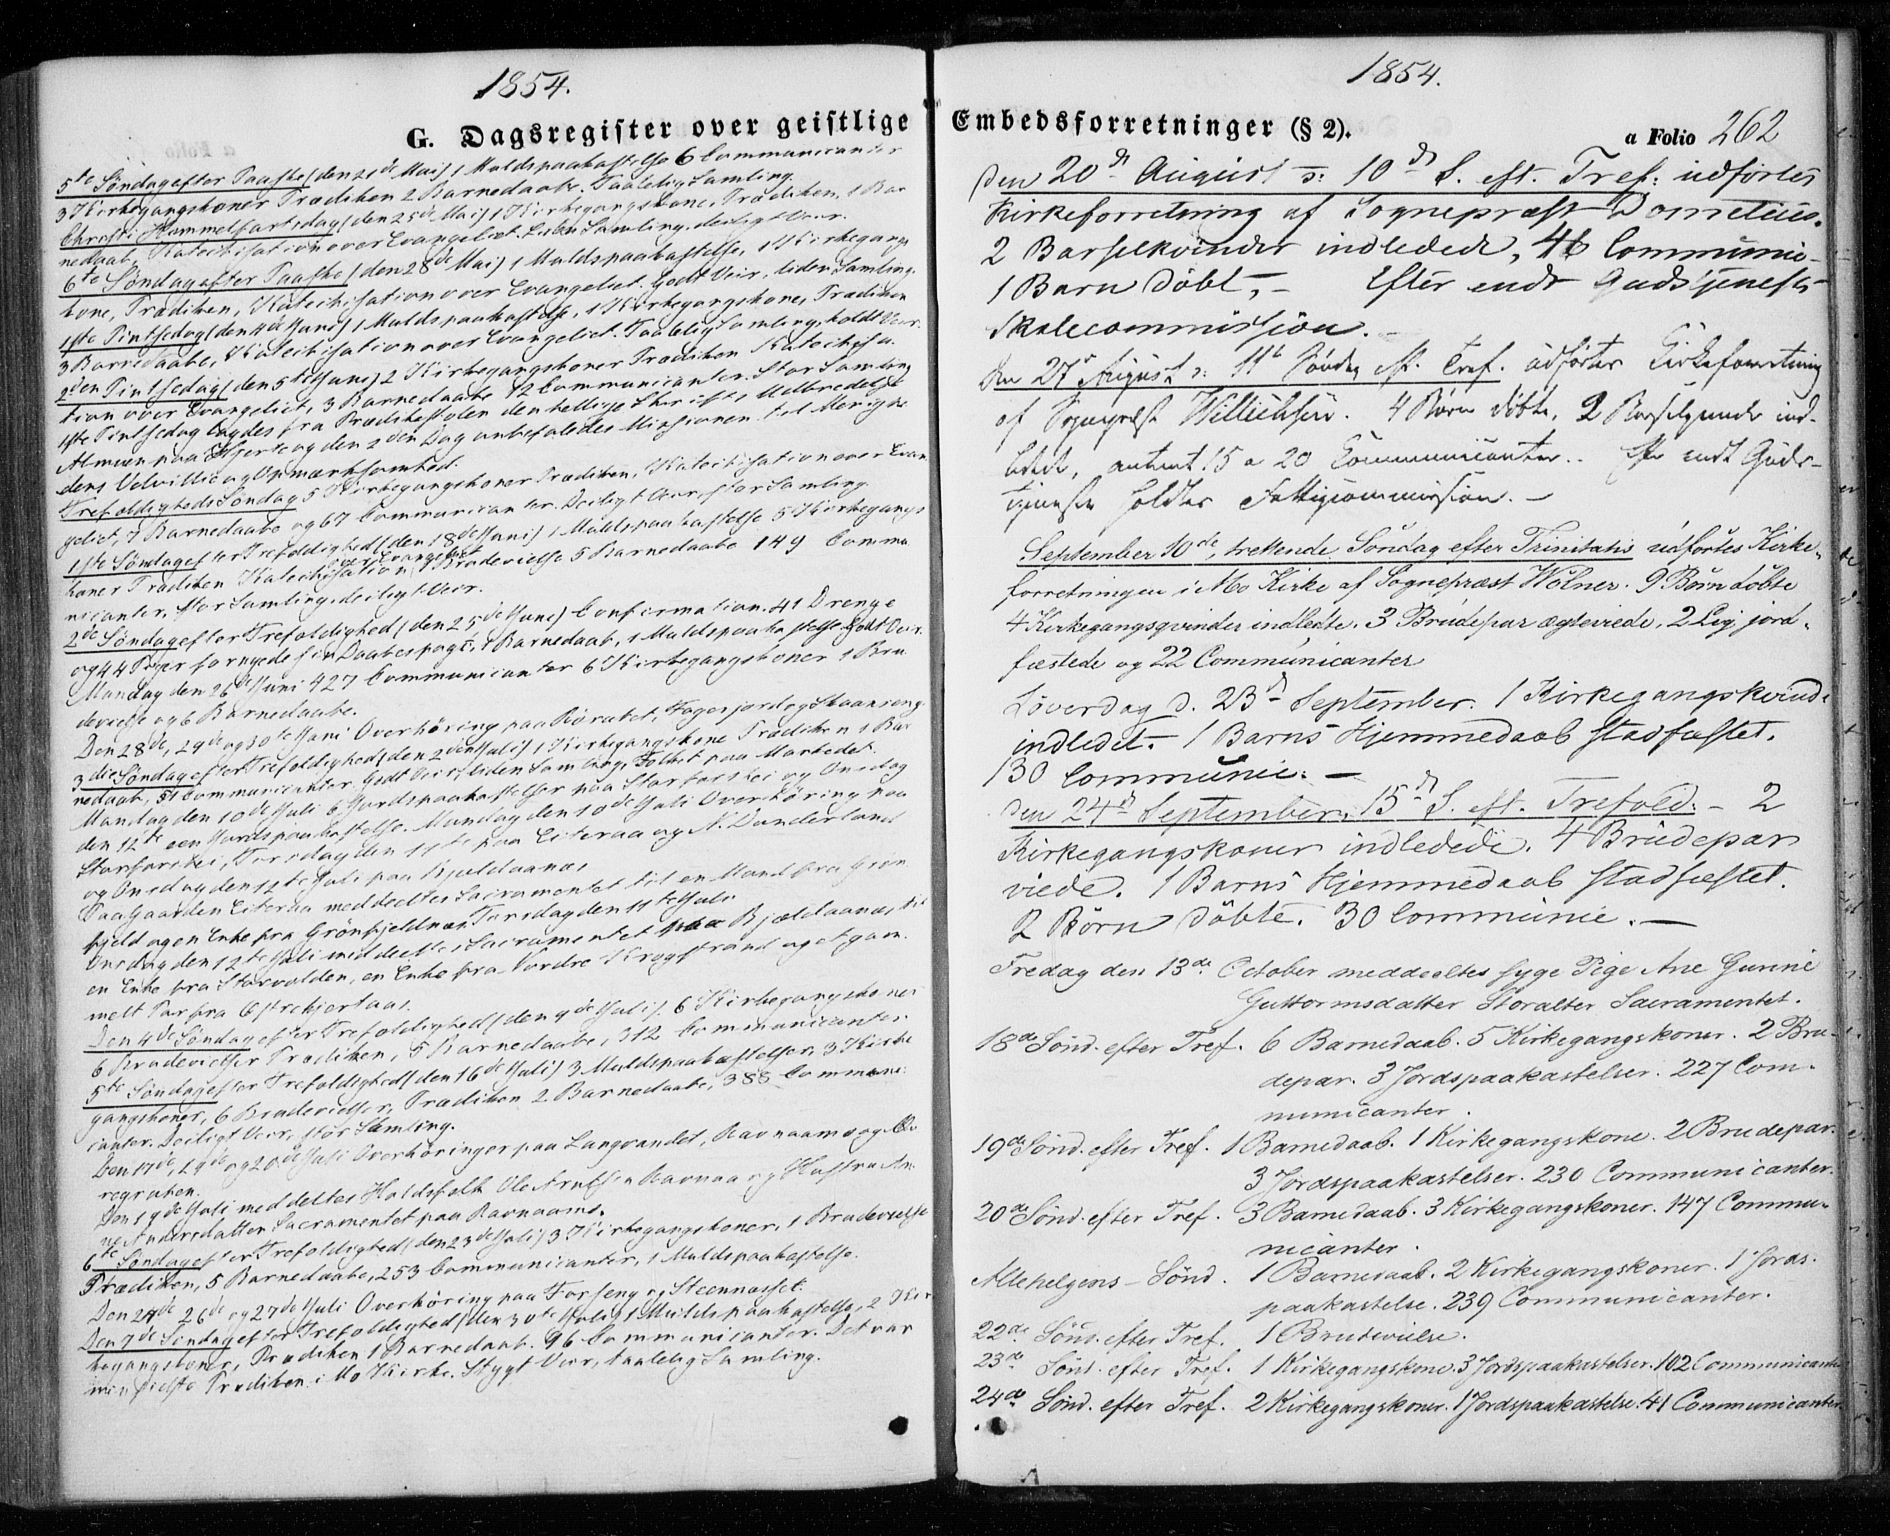 1854.
G. Dagsregister over geistlige
5te Søndag efter Paaske (den 21de Mai) 1 Muldspaakastelse 6 Communicanter
3 Kirkegangskoner Prædiken 2 Barnedaabe. Taalelig Samling.
Christi Himmelfartsdag (den 25de Mai) 1 Kirkegangskone, Prædiken, 1 Bar
nedaab, Katechisation over Evangeliet. Liden Samling, deiligt Veir.
6te Søndag efter Paaske (den 28de Mai) 1 Muldspaakastelse, 1 Kirkegangs
kone, Prædiken, Katechisation over Evangeliet. Godt Veir, liden Samling.
1ste Pintsedag (den 4de Juni) 1 Muldspaakastelse, 1 Kirkegangskone, Prædiken
3 Barnedaabe, Katechisation over Evangeliet. Taalelig Samling, koldt Veir.
2den Pintsedag (den 5te Juni) 2 Kirkegangskoner Prædiken Katechisa
tion over Evangeliet, 3 Barnedaabe 12 Communicanter. Stor Samling
1ste Pintsedag lagdes fra Prædikestolen den hellige Skrifts Udbredelse
Almuen paa Hjerte og den 2den Dag anbefaledes Missionen til Menighe
dens Velvillie og Opmærksomhed.
Trefoldigheds Søndag 5 Kirkegangskoner Prædiken, Katechisation over Evan
geliet, 7 Barnedaabe og 67 Communicanter. Deiligt Veir, stor Samling.
1ste Søndag efter Trefoldighed (den 18de Juni) 1 Muldspaakastelse 5 Kirkegangs
koner Prædiken Katechisation over Evangeliet, 1 Brudevielse 5 Barnedaabe 149 Commu
nicanter, stor Samling, deiligt Veir.
2de Søndag efter Trefoldighed (den 25de Juni) Confirmation. 41 Drenge
og 44 Piger fornyede sin Daabespagt, 1 Barnedaab, 1 Muldspaakastelse Godt Veir.
Mandag den 26de Juni 427 Communicanter 6 Kirkegangskoner 1 Bru
devielse og 6 Barnedaabe.
Den 28de, 29de og 30te Juni Overhøring paa Røvatnet, Fagerjord og Skaanseng
3die Søndag efter Trefoldighed (den 2den Juli) 1 Kirkegangskone Prædiken 1 Bar
nedaab, 51 Communicanter. Godt Veir, liden Samling, Folket paa Markedet.
Mandag den 10de Juli 6 Jordspaakastelser paa Storforshei og Onsdag
den 12te een Jordspaakastelse. Mandag den 10de Juli Overhøring paa
Storforshei, Torsdag den 11te paa Eiteraa og N. Dunderland
og Onsdag den 12te Juli paa Bjeldaanæs
Paa Gaarden Eiteraa meddeeltes Sacramentet til en Mand fra Grøn
fjeld og en Enke fra Grønfjeldnæs Torsdag den 11te Juli.
Onsdag den 12te Juli meddeeltes Sacramentet paa Bjældaanæs til
en Enke fra Storvolden, en Enke fra Nordre Krogstrand og et gam
melt Par fra
Den 4de Søndag efter Trefoldighed (den 9de Juli). 6 Kirkegangskoner
6 Brudevielser Prædiken, 5 Barnedaabe, 312 Communicanter.
5te Søndag efter Trefoldighed (den 16de Juli) 3 Muldspaakastelser, 3 Kirke
gangskoner, 6 Brudevielser, Prædiken 2 Barnedaabe, 388 Communi
canter. Deiligt Veir, stor Samling.
Den 17de, 19de og 20de Juli Overhøringer paa Langvandet, Ravnaamo og
Den 19de Juli meddeltes Sacramentet paa Ravnaamo.
6te Søndag efter Trefoldighed (den 23de Juli) 3 Kirkegangskoner, 1 Brudevielse
Prædiken, 5 Barnedaabe, 253 Communicanter, 1 Muldspaakastelse.
Den 24de 26de og 27de Juli Overhøring paa Forseng og Steennæsset.
Den 7de Søndag efter Trefoldighed (den 30te Juli) 1 Muldspaakastelse, 2 Kir
kegangskoner, Prædiken 1 Barnedaab. 96 Communicanter. Det var
min sidste Prædiken i Mo Kirke. Stygt Veir, taalelig Samling.
1854.
Embedsforretninger (§ 2).
a Folio 262
Den 20de August ɔ: 10de S. eft. Tref: udførtes
Kirkeforretning af Sognepræst Dorretius.
2 Barselkvinder indledede, 46 Communic-
1 Barn døbt, – Efter endt Gudstjeneste
Skolecommission. –
Den 27de August ɔ: 11te Søndag eft. Tref. udførtes Kirkeforretning
af Sognepræst Wilhelmsen. 4 Børn døbte, 2 Barselqvinder ind-
ledede, omtrent 15 a 20 Communicanter. Efter endt Guds-
tjeneste holdtes Fattigcommission. –
September 10de, trettende Søndag efter Trinitatis udførtes Kirke-
forretningen i Mo Kirke af Sognepræst Wolner. 9 Børn døbte
4 Kirkegangsqvinder indledte. 3 Brudepar ægteviede, 2 Lig jord-
fæstede og 22 Communicanter
Løverdag d. 23de September. 1 Kirkegangskvinde
indledet. 1 Barns Hjemmedaab stadfæstet.
130 Communic: –
Den 24de September, 15de S. eft. Trefold: – 2
Kirkegangskoner indledede. 4 Brudepar
viede. 1 Barns Hjemmedaab stadfæstet.
2 Børn døbte. 30 Communic. –
Fredag den 13de October meddeeltes syge Pige Ane Gunine
Guttormsdatter Storalter Sacramentet.
18de Sønd. efter Tref. 6 Barnedaab. 5 Kirkegangskoner. 2 Bru-
depar. 3 Jordspaakastelser. 227 Com-
municanter.
19de Sønd. efter Tref. 1 Barnedaab. 1 Kirkegangskone. 2 Brudepar.
3 Jordspaakastelser. 230 Communicanter.
20de Sønd. efter Tref. 3 Barnedaab. 3 Kirkegangskoner. 147 Commu-
nicanter.
Allehelgens-Sønd. 1 Barnedaab. 2 Kirkegangskoner. 1 Jords-
paakastelse. 239 Communicanter.
22de Sønd. efter Tref. 1 Brudevielse.
23de Sønd. efter Tref. 1 Kirkegangskone. 3 Jordspaakastelser. 102 Communicanter
24de Sønd. efter Tref. 2 Kirkegangskoner. 1 Jordspaakastelse. 41 Communicanter.